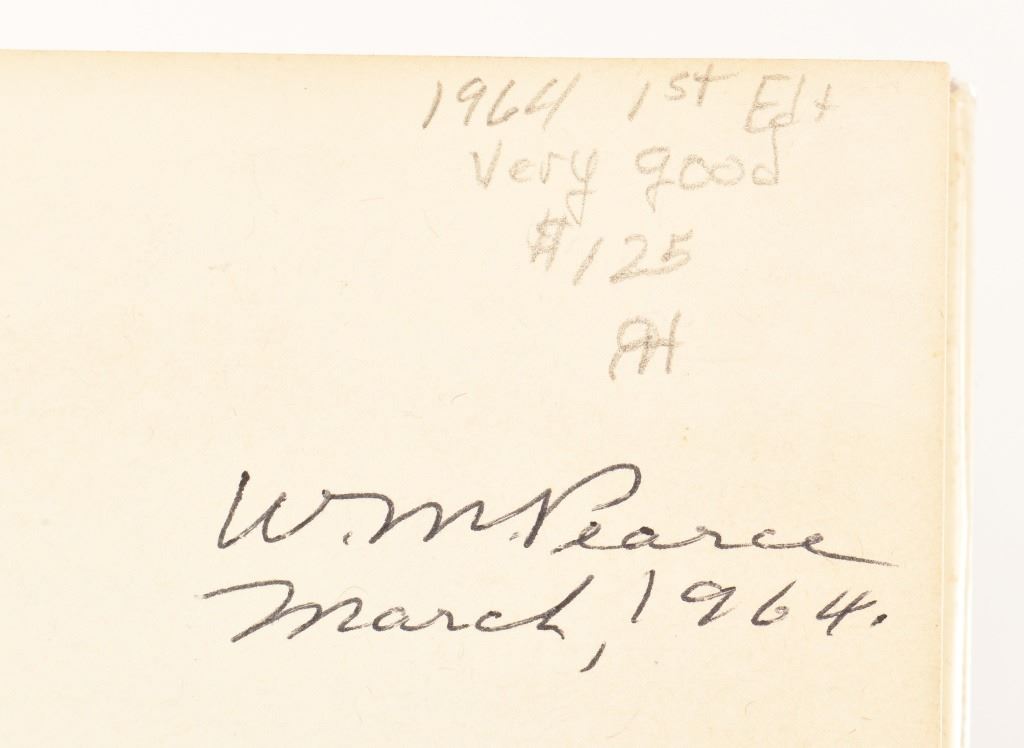 1964 1st Edt
Very good
$125
AH
W.M. Pearce
March, 1964.